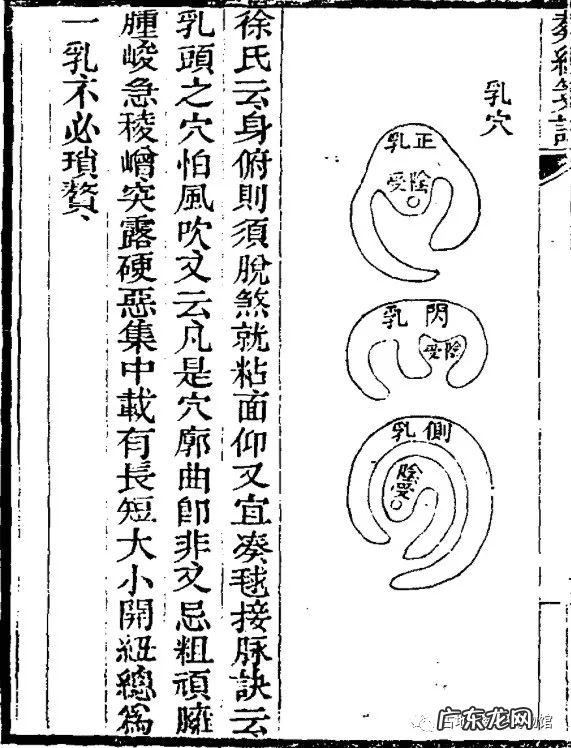 乳穴
正乳
陰受
閃乳
陰受
側乳
陰受
徐氏云身俯則須脫煞就粘面仰又宜凑毬接脉訣云
乳頭之穴怕風吹又云凡是穴廓曲即非又忌粗頑臃
腫峻急稜嶒突露硬惡集中載有長短大小開紐總爲
一乳不必瑣贅
广东龙网
馆